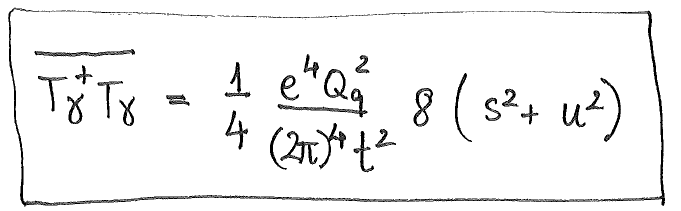 $\overline{T_\gamma^+ T_\gamma} = \frac{1}{4} \frac{e^4 Q_q^2}{(2\pi)^4 t^2} 8 (s^2 + u^2)$